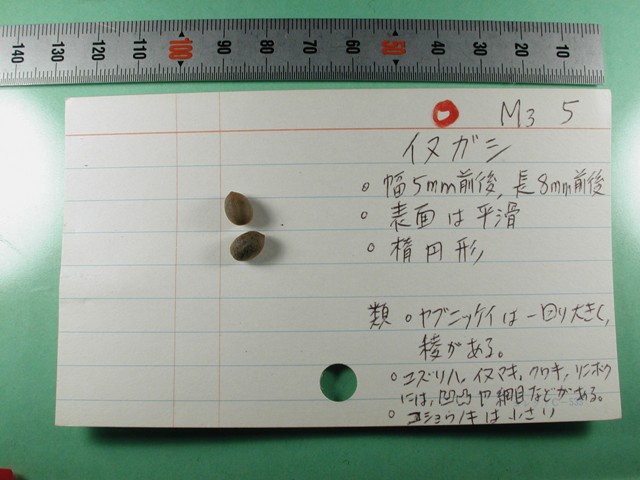 140 130 120 110 100 90 80 70 60 50 40 30 20 10
M3 5
イヌガシ
○ 幅5mm前後, 長8mm前後
○ 表面は平滑
○ 楕円形
類 ○ ヤブニッケイは一回り大きく,
稜がある。
○ ユズリハ, イヌマキ, クロキ, リンボク
には, 凹凸や網目などがある。
○ は小さい